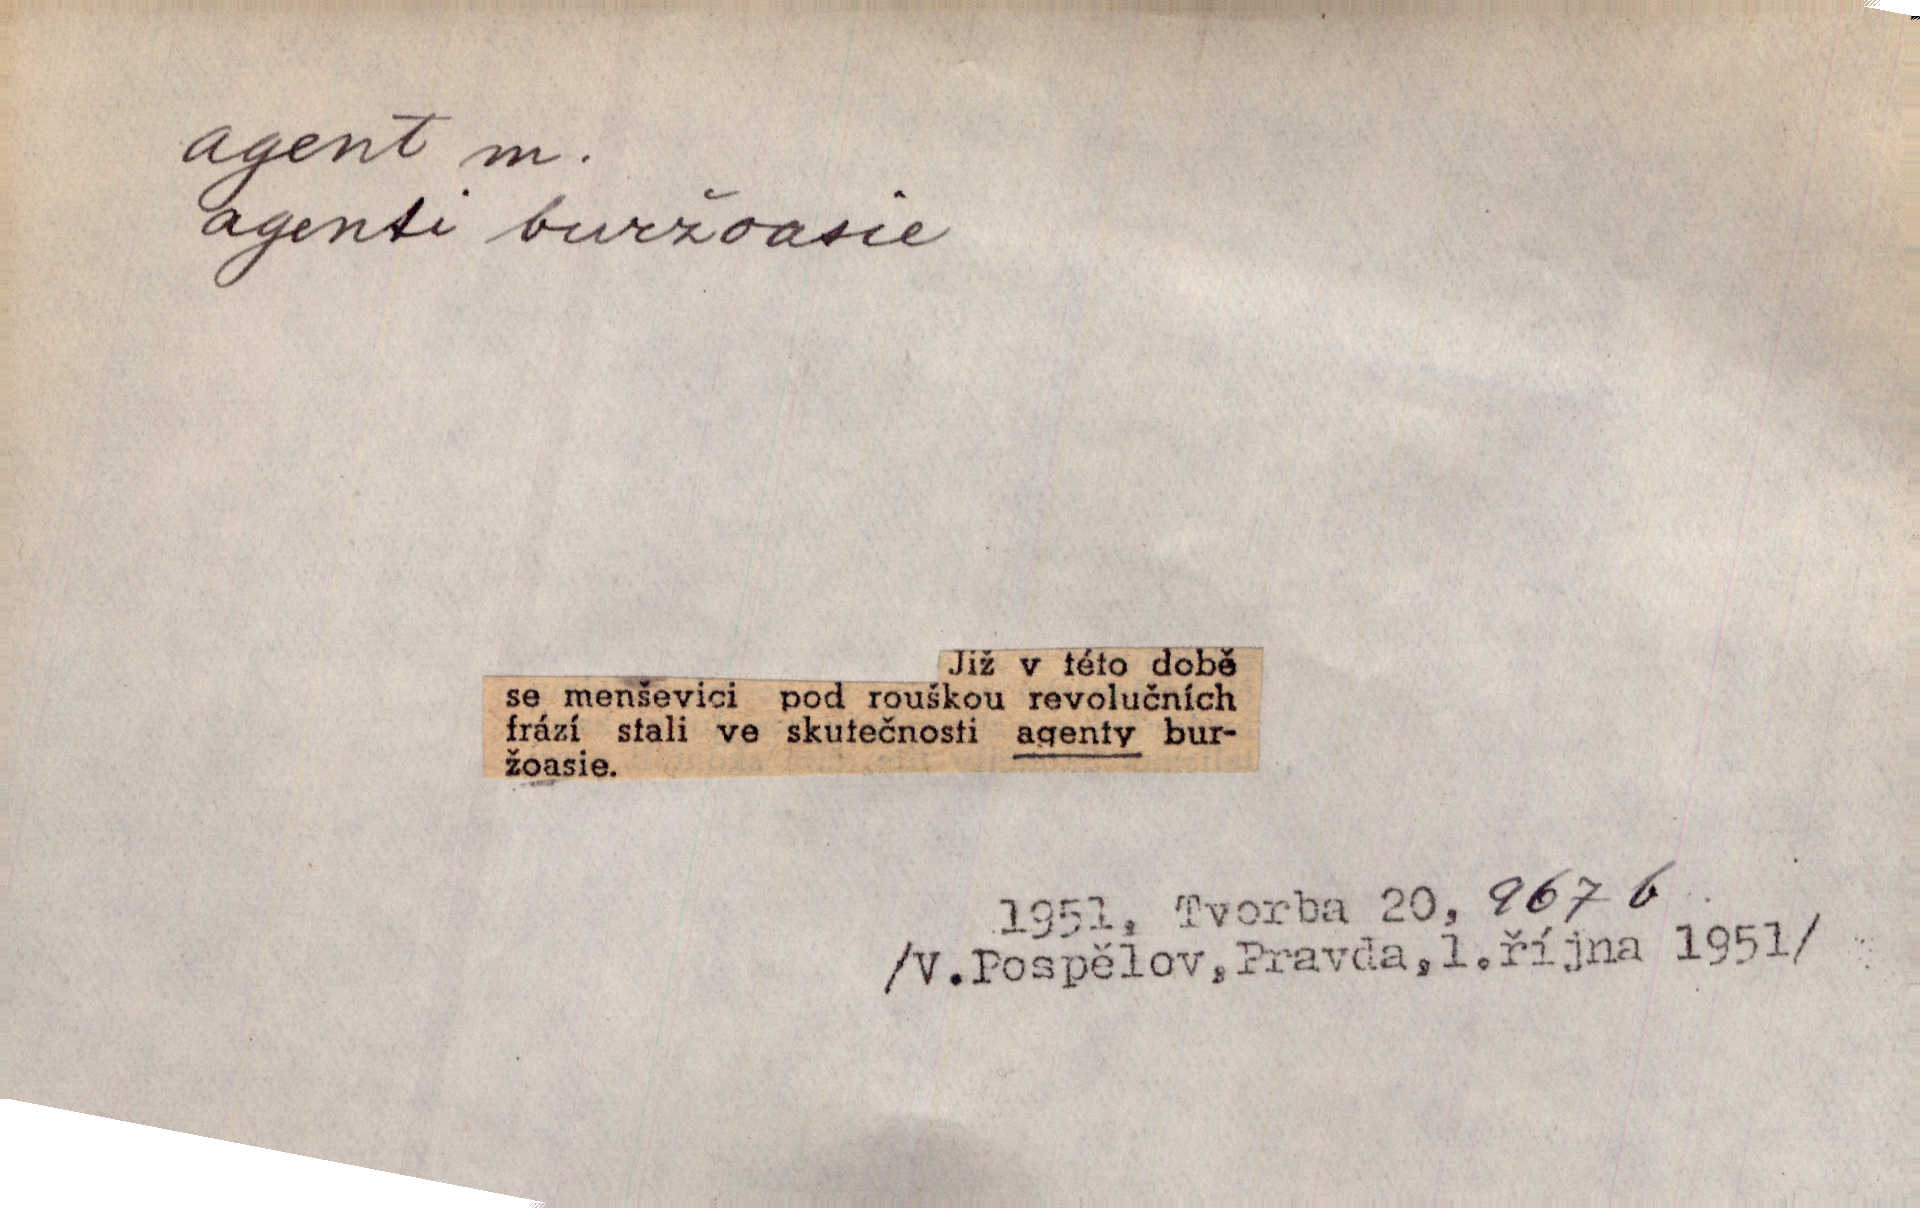 agent m.
agenti buržoasie
Již v této době
se menševici pod rouškou revolučních
frází stali ve skutečnosti agenty bur-
žoasie.
1951, Tvorba 20, 967 b
/V.Pospělov,Pravda,1.října 1951/